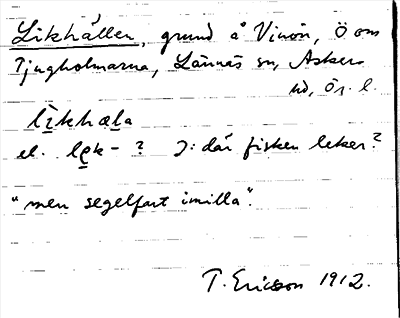 Likhällen, grund å Vinön, Ö om
Tjugholmarna, Lännäs sn, Askers
hd, Ör. l.
lìkhæla
el. lek- ? ɔ: där fisken leker?
"men segelfart imilla".
T. Ericsson 1912.